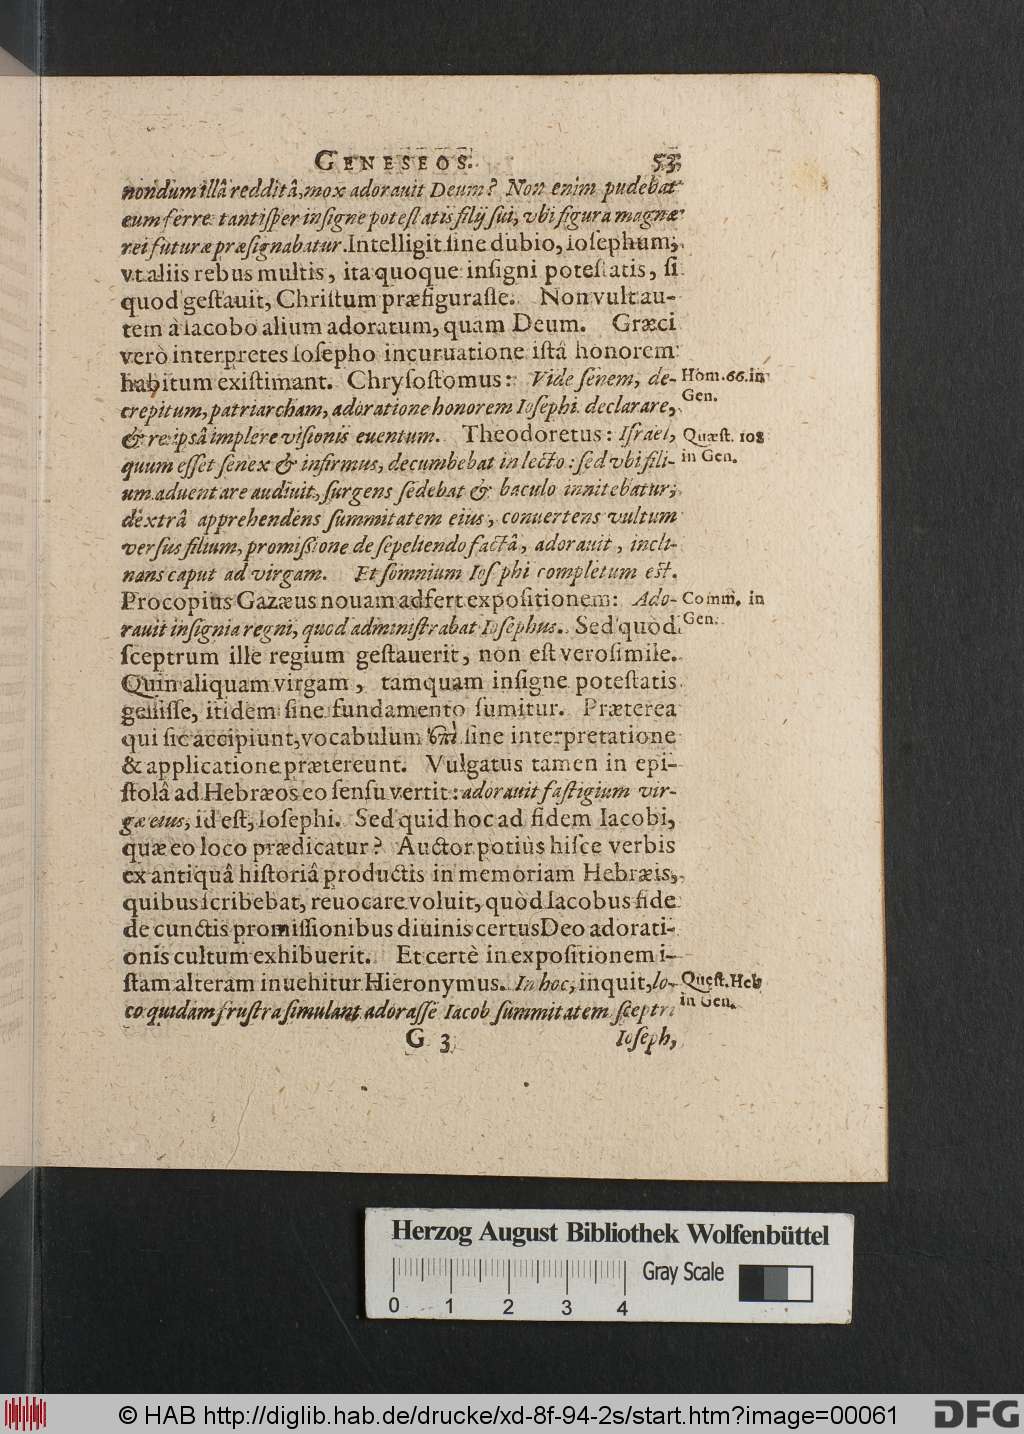 GENESEOS. 53
nondum illâ redditâ, mox adorauit Deum? Non enim pudebat
eum ferre tantiſper inſigne poteſtatis filij ſui, vbi figura magnæ
rei futuræ præſignabatur. Intelligit ſine dubio, Ioſephum,
vt aliis rebus multis, ita quoque inſigni poteſtatis, ſi
quod geſtauit, Chriſtum præfiguraſſe. Non vult au-
tem à Iacobo alium adoratum, quam Deum. Græci
verò interpretes Ioſepho incuruatione iſtâ honorem
habitum exiſtimant. Chryſoſtomus: Vide ſenem, de-
Hom. 66. in
Gen.
crepitum, patriarcham, adoratione honorem Ioſephi declarare,
& reipsâ implere viſionis euentum. Theodoretus: Iſrael,
Quæſt. 108
in Gen.
quum eſſet ſenex & infirmus, decumbebat in lecto: ſed vbi fili-
um aduentare audiuit, ſurgens ſedebat & baculo innitebatur,
dextrâ apprehendens ſummitatem eius, conuertens vultum
verſus filium, promißione de ſepeliendo factâ, adorauit, incli-
nans caput ad virgam. Et ſomnium Ioſephi completum eſt.
Procopius Gazæus nouam adfert expoſitionem: Ado-
Comm. in
Gen.
rauit inſignia regni, quod adminiſtrabat Ioſephus. Sed quòd
ſceptrum ille regium geſtauerit, non eſt veroſimile.
Quin aliquam virgam, tamquam inſigne poteſtatis
geſſiſſe, itidem ſine fundamento ſumitur. Præterea
qui ſic accipiunt, vocabulum ſine interpretatione
& applicatione prætereunt. Vulgatus tamen in epi-
ſtolâ ad Hebræos eo ſenſu vertit: adorauit faſtigium vir-
gæ eius, id eſt, Ioſephi. Sed quid hoc ad fidem Iacobi,
quæ eo loco prædicatur? Auctor potiùs hiſce verbis
ex antiquâ hiſtoriâ productis in memoriam Hebræis,
quibus ſcribebat, reuocare voluit, quòd Iacobus fide
de cunctis promiſſionibus diuinis certus Deo adorati-
onis cultum exhibuerit. Et certè in expoſitionem i-
ſtam alteram inuehitur Hieronymus. In hoc, inquit, lo-
Queſt. Heb
in Gen.
co quidam fruſtra ſimulant adoraſſe Iacob ſummitatem ſceptri
G 3 Ioſeph,
Herzog August Bibliothek Wolfenbüttel
Gray Scale
0 1 2 3 4
© HAB http://diglib.hab.de/drucke/xd-8f-94-2s/start.htm?image=00061
DFG